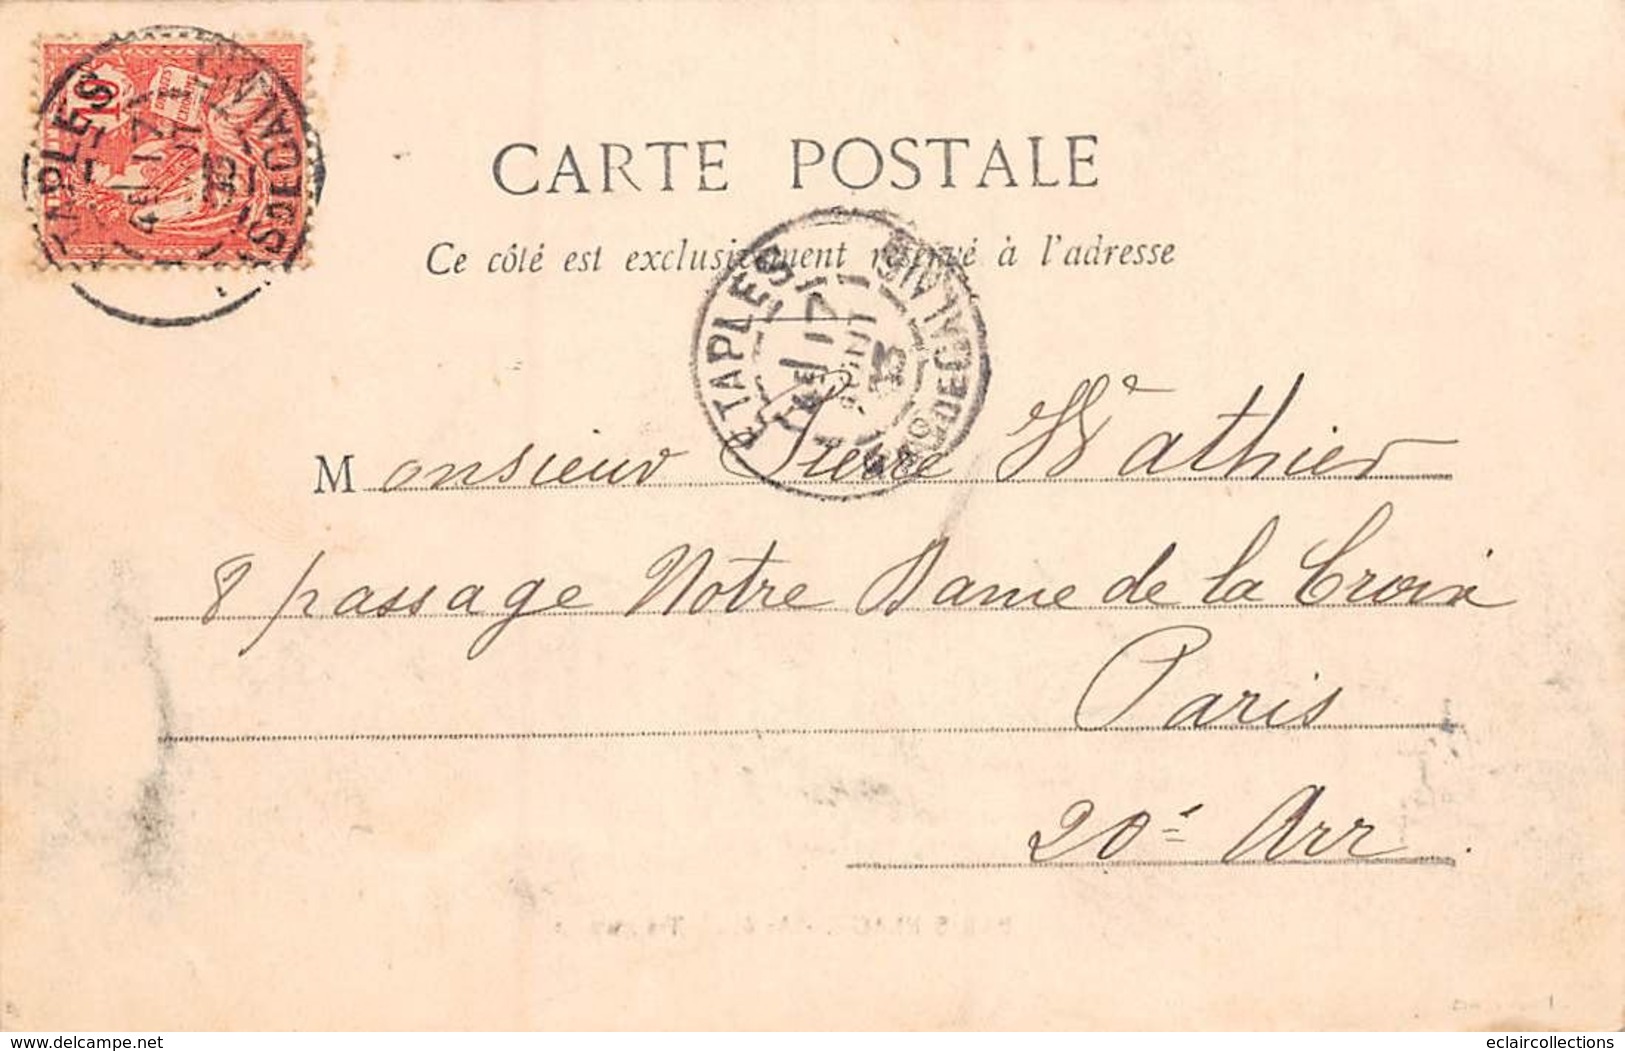 CARTE POSTALE
Ce côté est exclusivement réservé à l'adresse
ETAPLES
PAS DE CALAIS
4E 17
Monsieur Pierre Wathier
8 passage Notre Dame de la Croix
Paris
20e Arr.
www.delcampe.net
eclaircollections